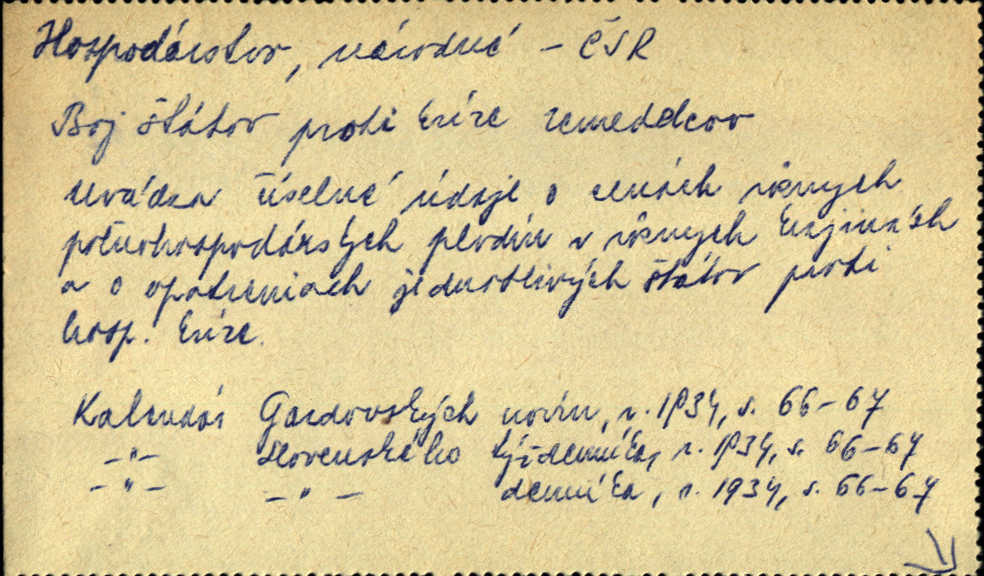 Hospodárstvo, národné - ČSR
Boj štátov proti kríze zemedelcov
Uvádza číselné údaje o cenách rôznych
poľnohospodárskych plodín v rôznych krajinách
a o opatreniach jednotlivých štátov proti
hosp. kríze.
Kalendár Gazdovských novín, r. 1934, s. 66-67
-"- Slovenského týždenníka, r. 1934, s. 66-67
-"- -"- denníka, r. 1934, s. 66-67